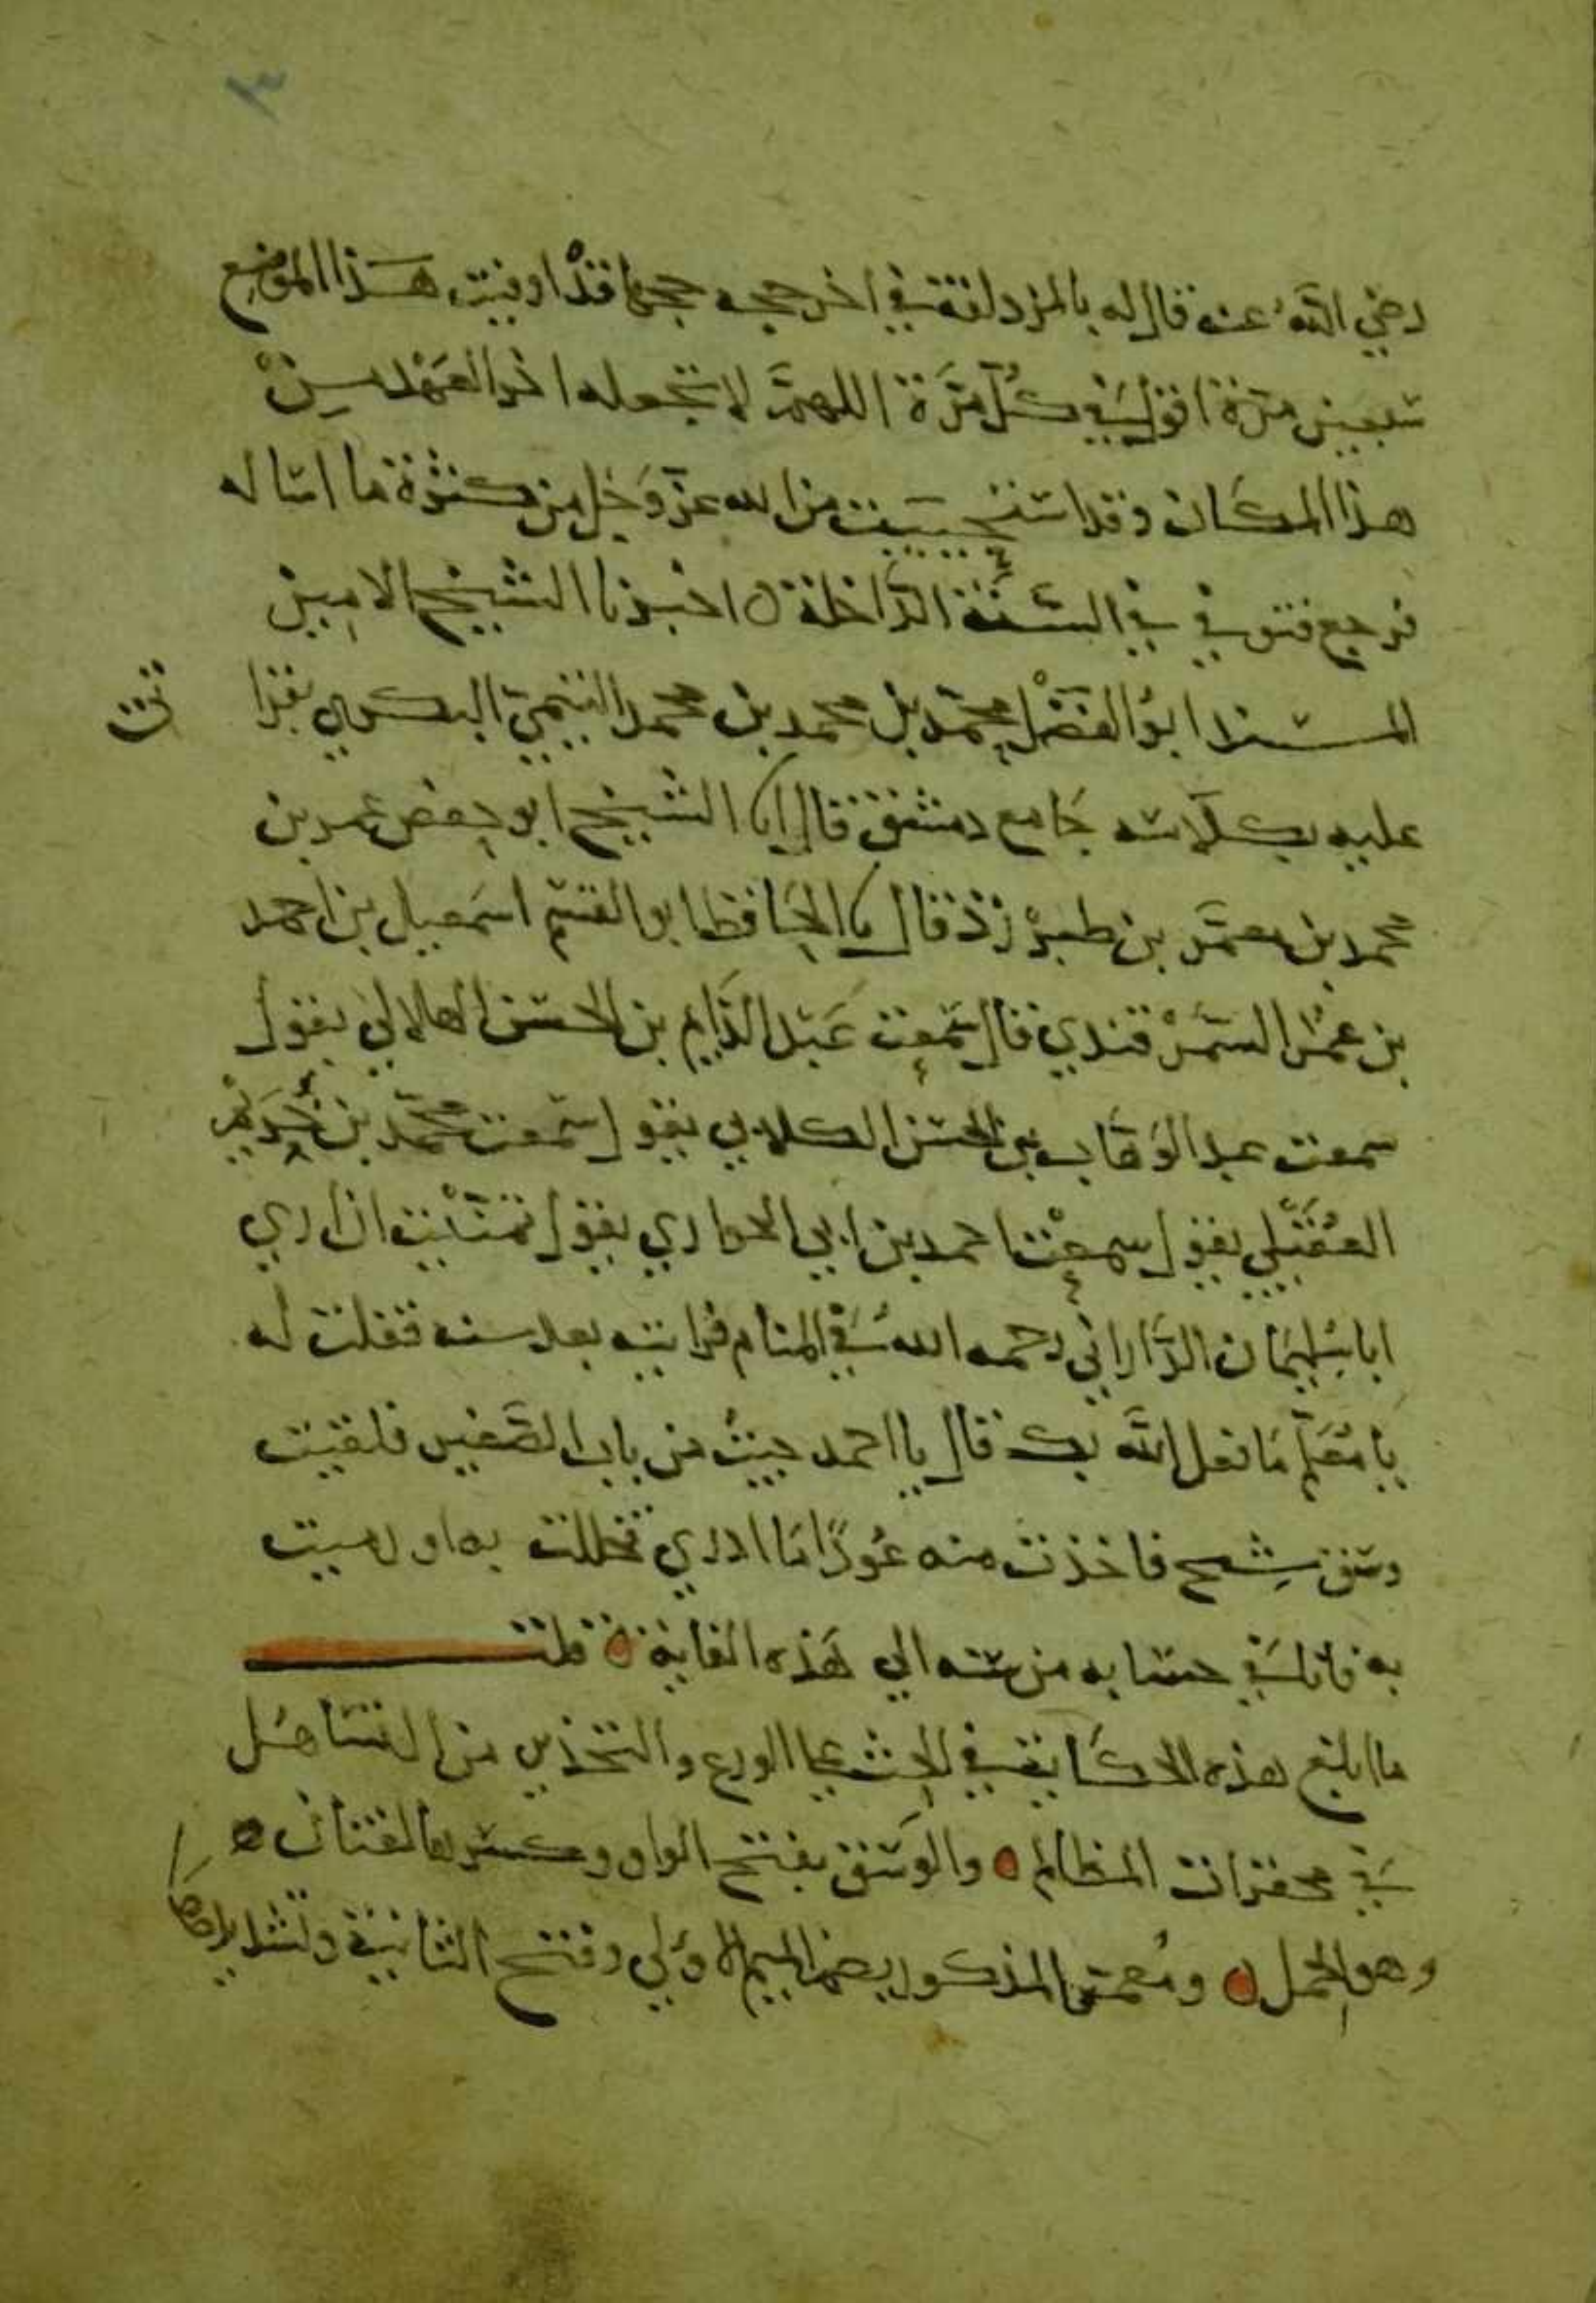 ٣
رضي الله عنه قال له بالمزدلفة في اخر حجه حجها قد اوفيت هذا الموضع
سبعين مرة اقول في كل مرة اللهم لا تجعله اخر العهد من
هذا المكان وقد استحييت من الله عز وجل من كثرة ما اساله
فرجع فتوفي في السنة الداخلة ه اخبرنا الشيخ الامين
المسند ابو الفضل محمد بن محمد بن محمد التيمي البكري بقرا
عليه بكلاسه جامع دمشق قال انا الشيخ ابو حفص عمر بن
محمد بن معمر بن طبرزذ قال انا الحافظ ابو القسم اسمعيل بن احمد
بن عمر السمرقندي قال سمعت عبد الدايم بن الحسن الهلالي يقول
سمعت عبد الوهاب بن الحسن الكلابي يقول سمعت محمد بن خريم
العقيلي يقول سمعت احمد بن ابي الحواري يقول تمنيت ان اري
ابا سليمان الداراني رحمه الله في المنام فرايته بعد سنه فقلت له
يا معلم ما فعل الله بك قال يا احمد جيت من باب الصغير فلقيت
وسق شيح فاخذت منه عودا ما ادري تخللت به او رميت
به فانا في حسابه من سنه الي هذه الغاية ه قلت
ما ابلغ هذه الحكاية في الحث علي الورع والتحذير من التساهل
في محقرات المظالم ه والوسق بفتح الواو وكسرها لغتان ه
وهو الحمل ه ومعمر المذكور بضم الميم الاولي وفتح الثانية وتشديدها